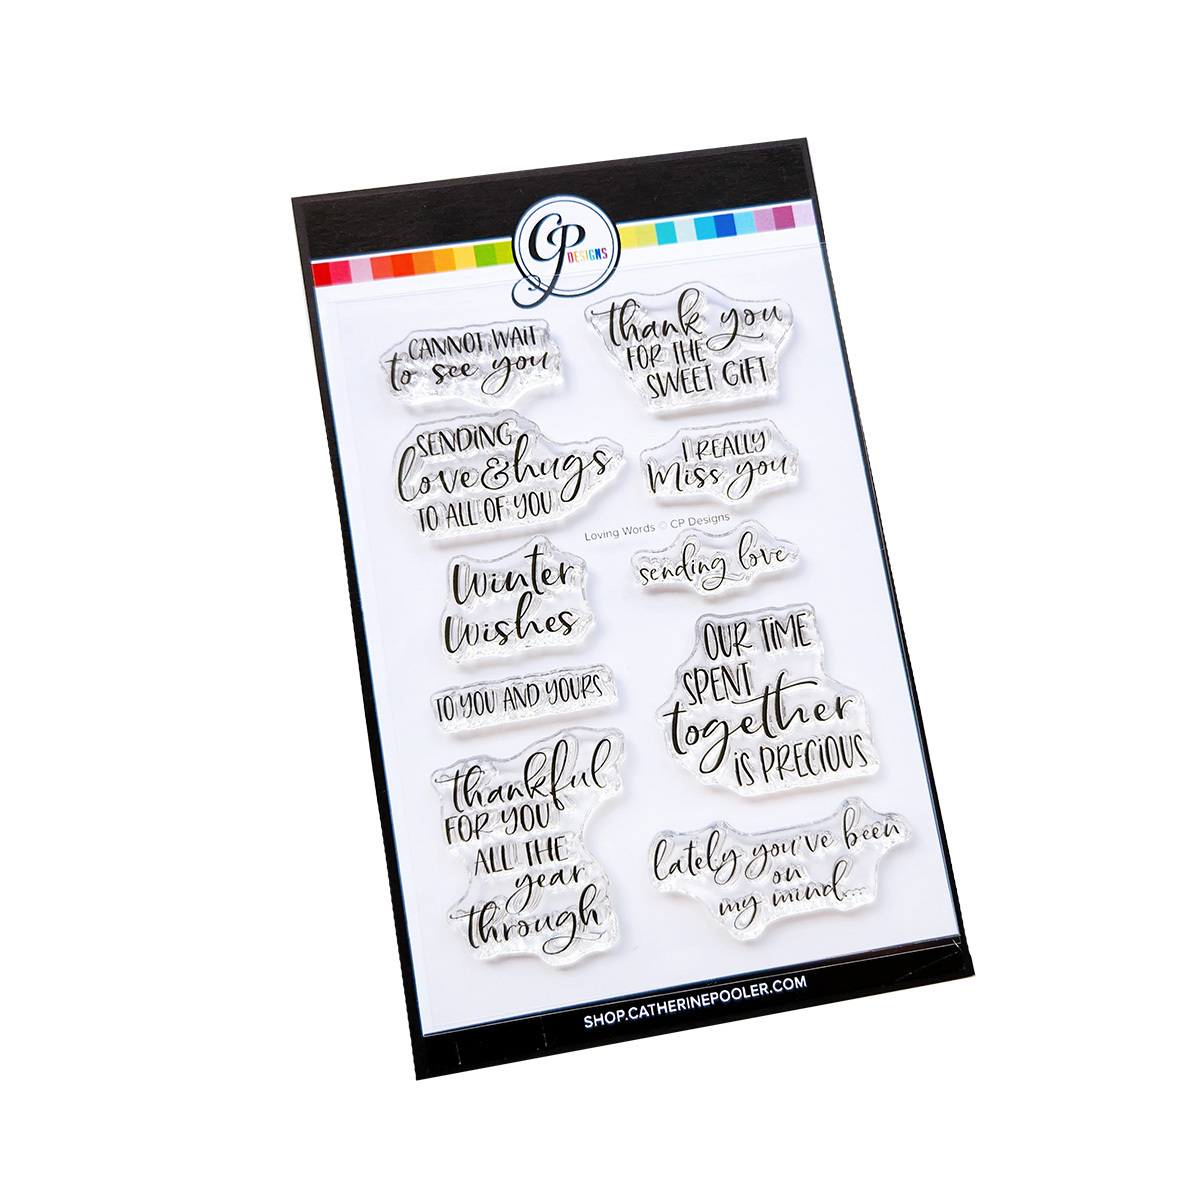 CP
DESIGNS
CANNOT WAIT
to see you
thank you
FOR THE
SWEET GIFT
SENDING
love & hugs
TO ALL OF YOU
I REALLY
Miss you
Loving Words © CP Designs
Winter
Wishes
sending love
TO YOU AND YOURS
OUR TIME
SPENT
together
IS PRECIOUS
thankful
FOR YOU
ALL THE
year
through
lately you've been
on
my mind...
SHOP.CATHERINEPOOLER.COM